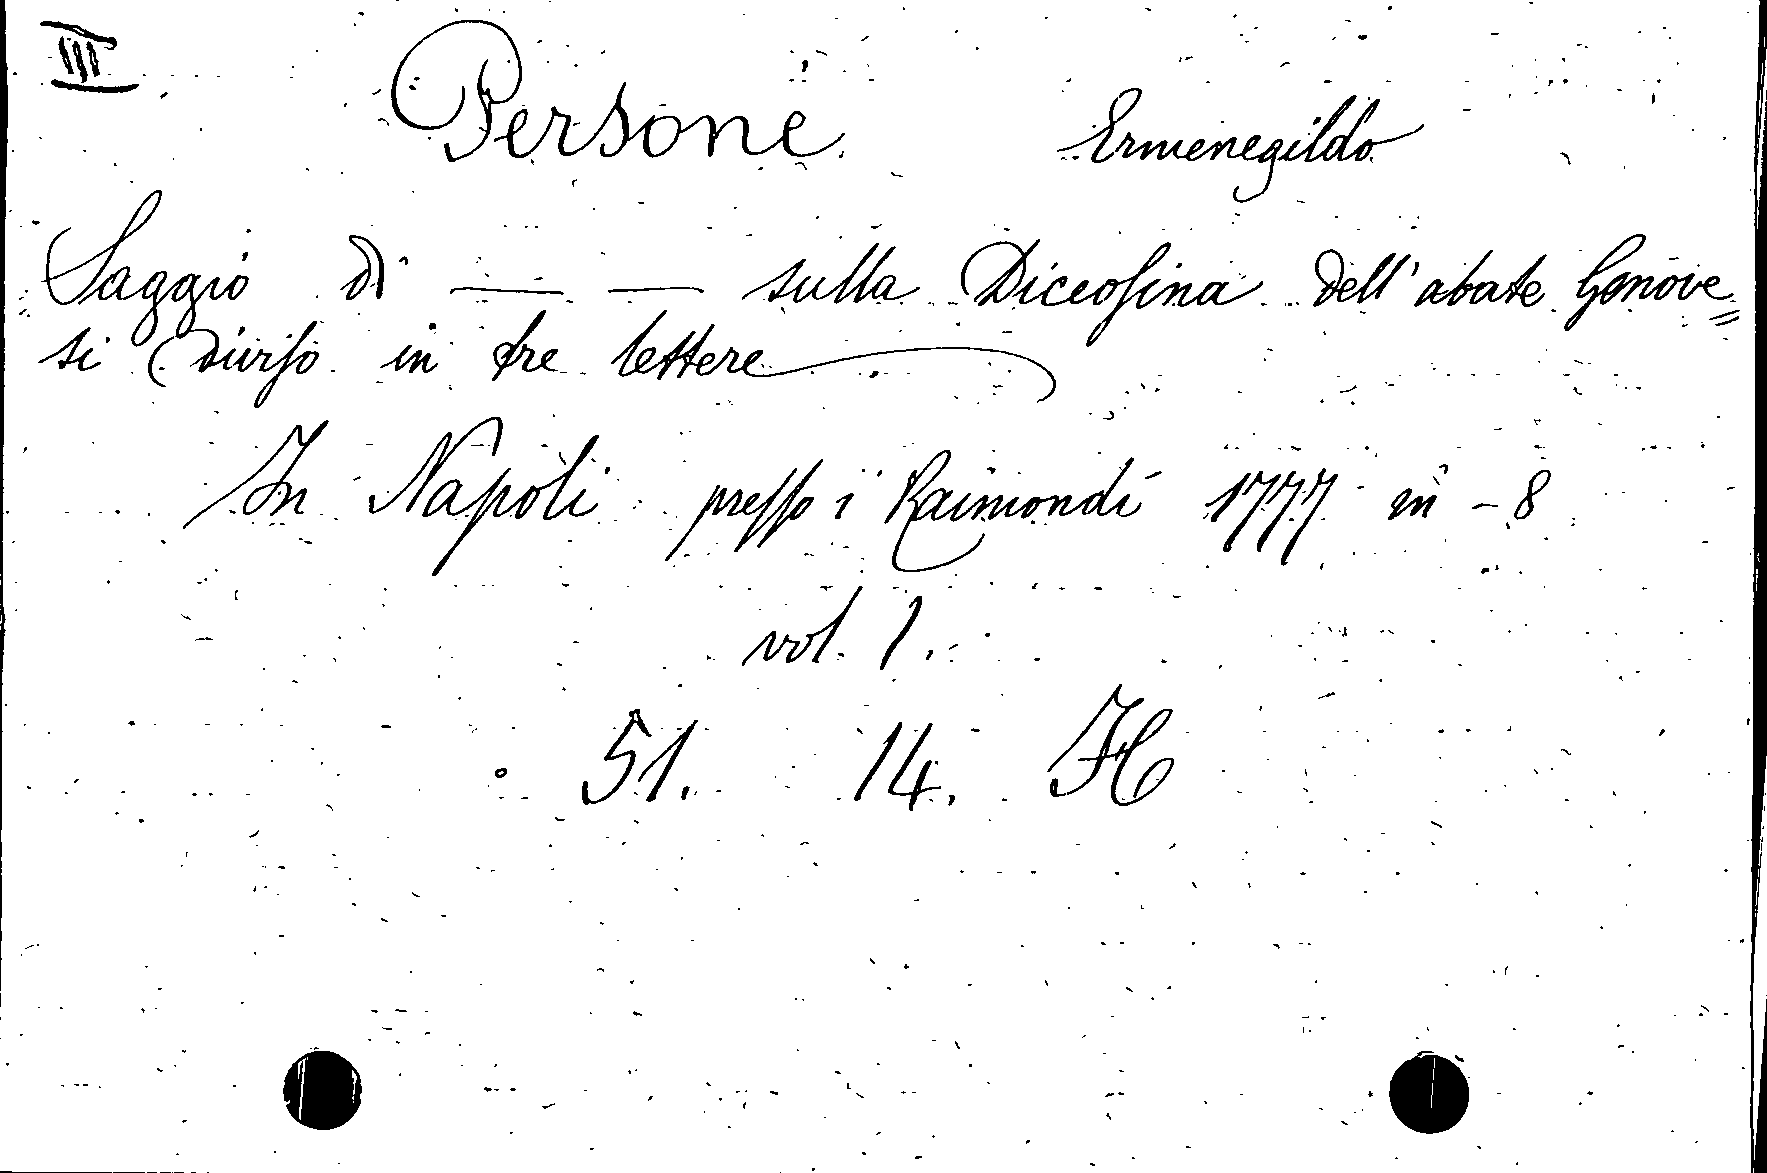 III
Persone Ermenegildo
Saggio di — — sulla Diceosina dell'abate Genove=
si diviso in tre lettere
In Napoli presso i Raimondi 1777 in - 8
vol. 1.
51. 14. H